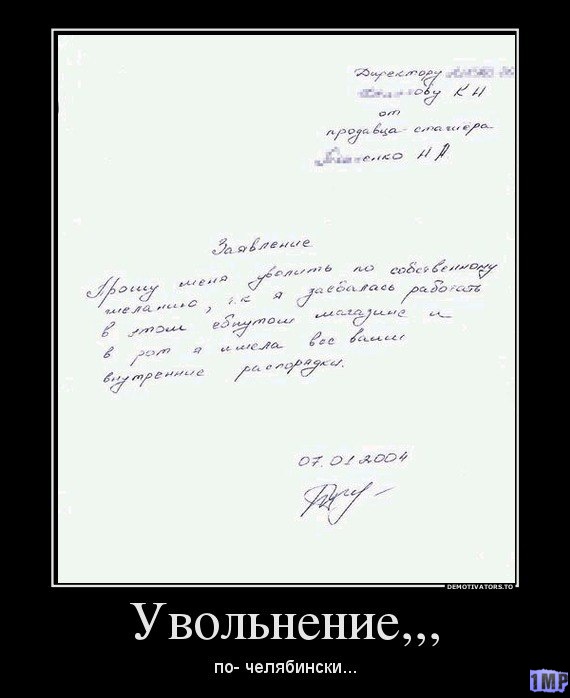 Директору
ову К Н
от
продавца-стажера
енко Н А
Заявление
Прошу меня уволить по собственному
желанию, т.к я заебалась работать
в этом ебнутом магазине и
в рот я имела все ваши
внутренние распорядки.
07.01.2004
DEMOTIVATORS.TO
Увольнение,,,
по- челябински...
1MP